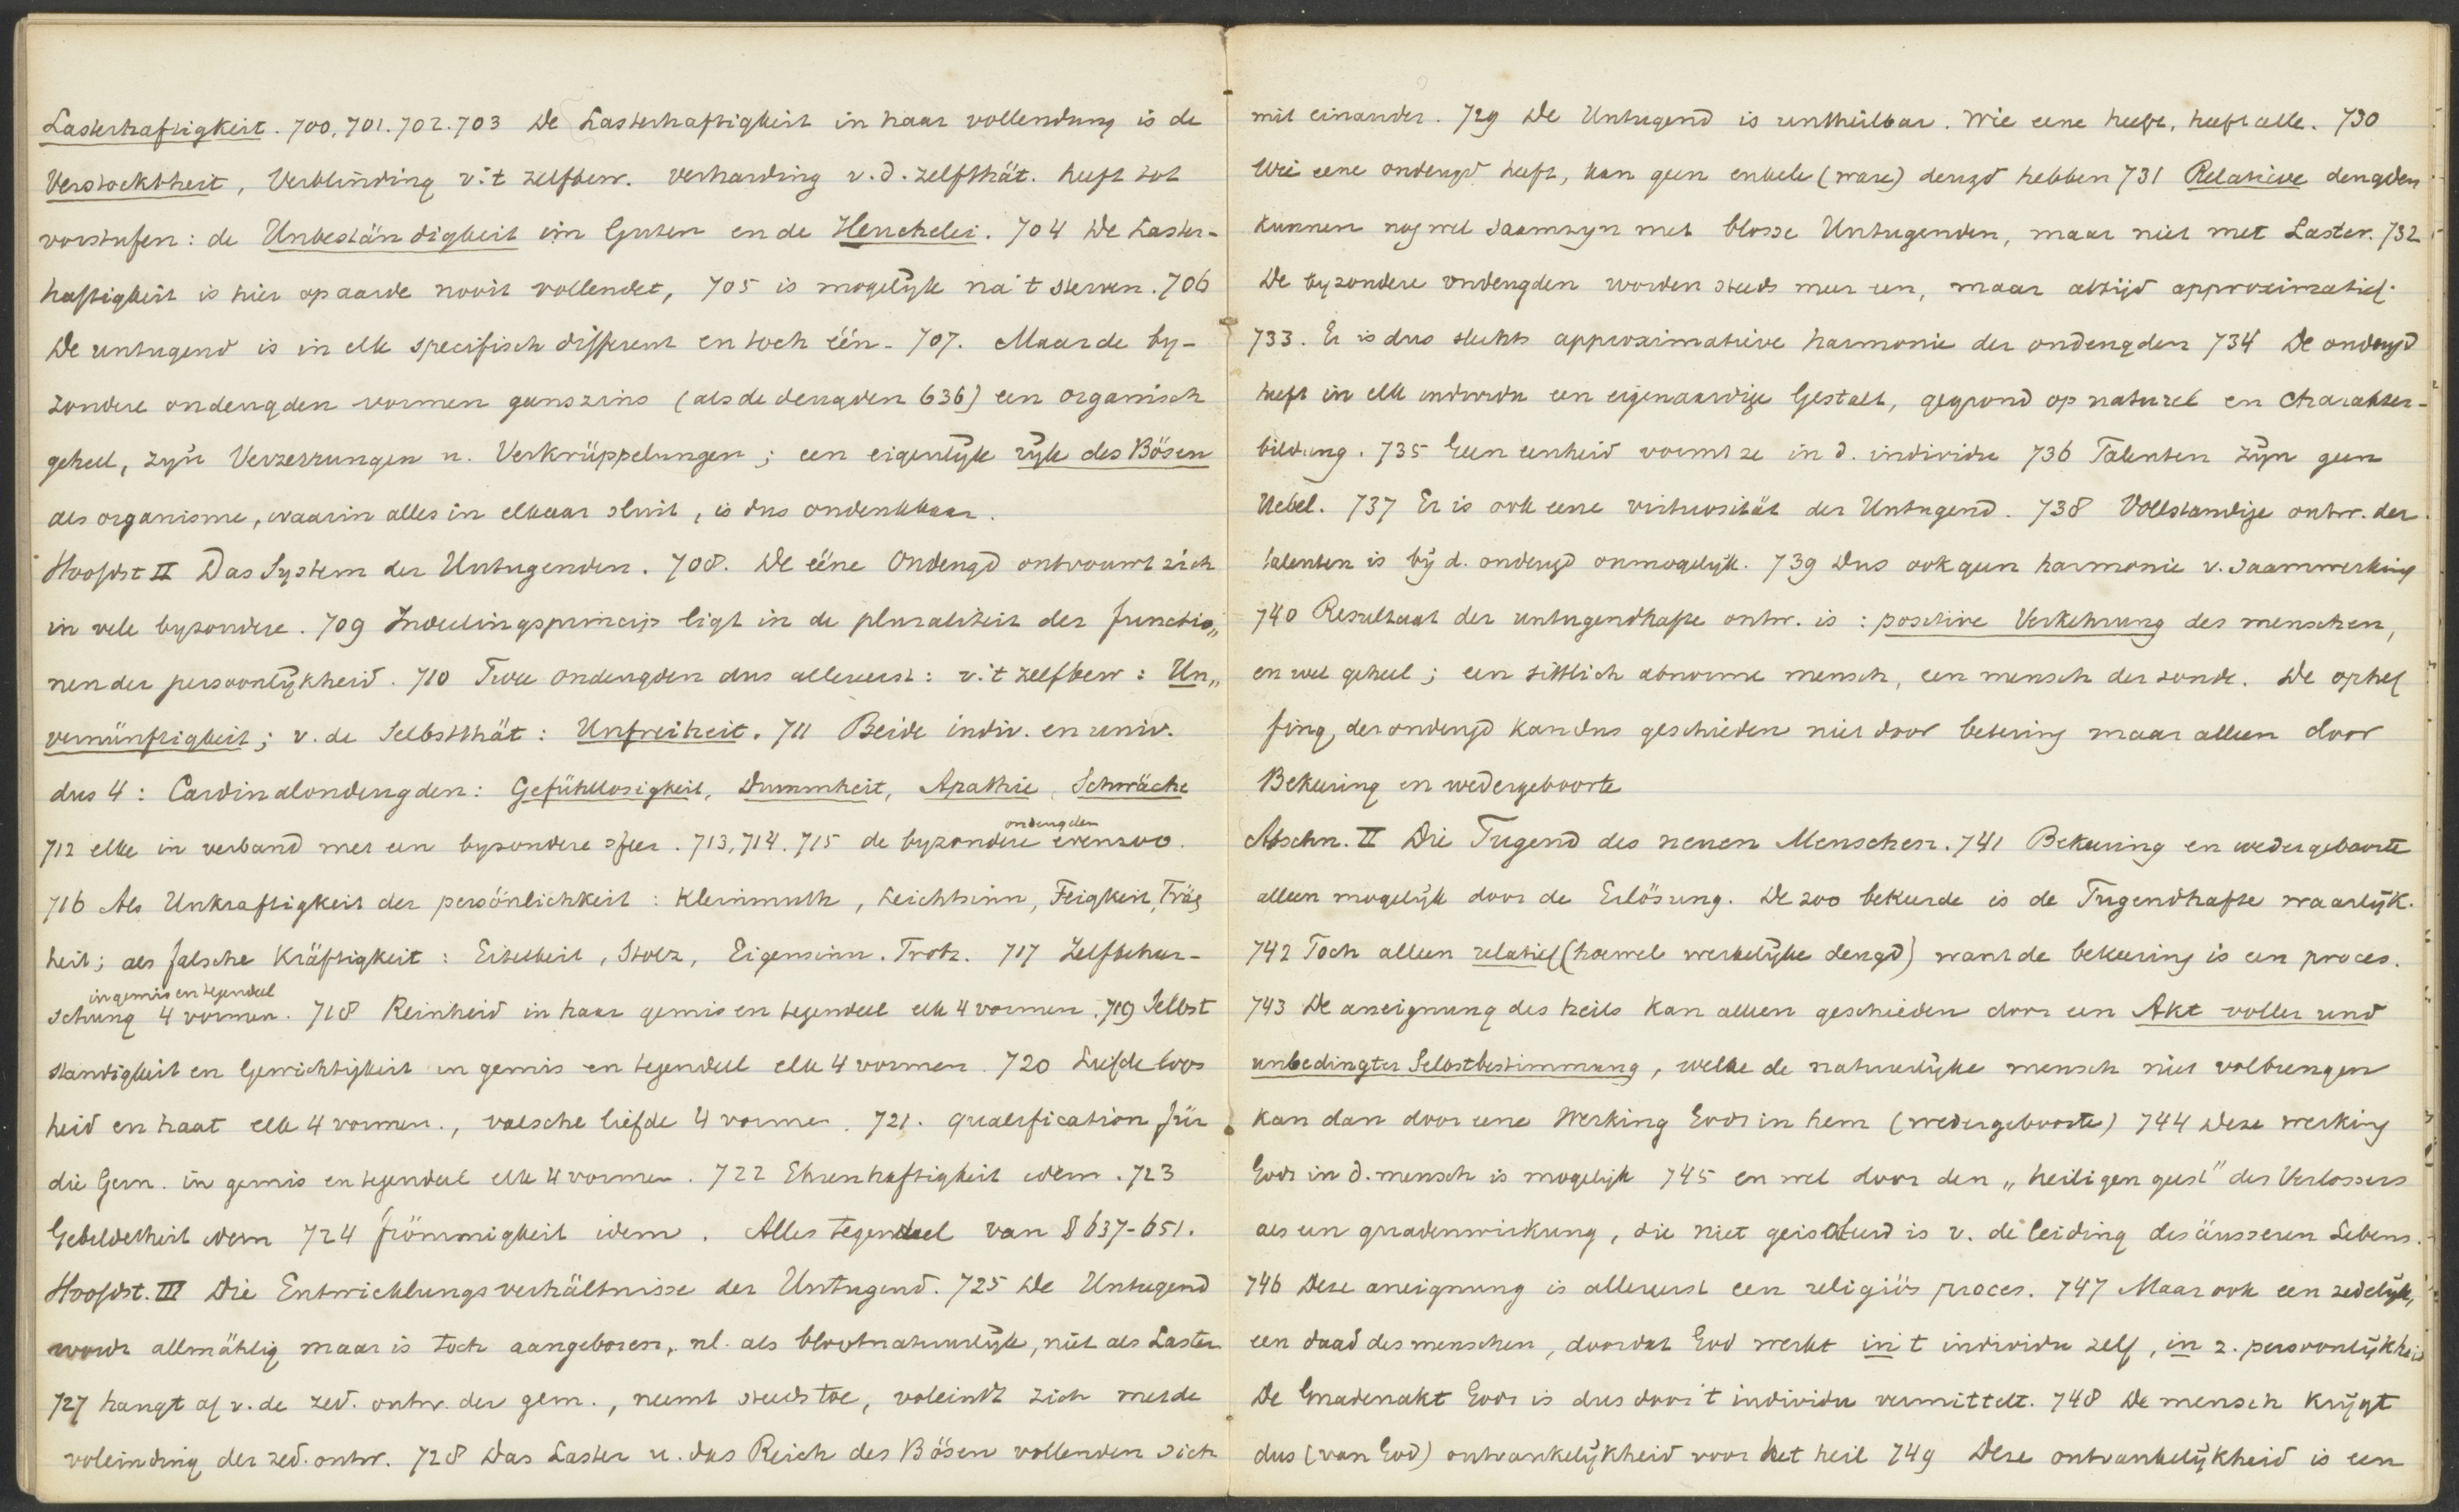 Lasterhaftigkeit. 700, 701. 702. 703 De Lasterhaftigkeit in haar vollendung is de
Verstocktheit, Verblinding v. 't zelfbew. verharding v. d. zelfthät. heeft tot
vorstufen: de Unbeständigkeit im Guten en de Heuchelei. 704 De Laster-
haftigkeit is hier op aarde nooit vollendet, 705 is mogelijk na 't sterven. 706
De untugend is in elk specifisch different en toch één. 707. Maar de by-
zondere ondeugden vormen geenszins (als de deugden 636) een organisch
geheel, zyn Verzerrungen u. Verkrüppelungen; een eigenlijk rijk des Bösen
als organisme, waarin alles in elkaar sluit, is dus ondenkbaar.
Hoofdst II Das System der Untugenden. 708. De ééne Ondeugd ontvouwt zich
in vele byzondere. 709 Indeelingsprincip ligt in de pluraliteit der functio„
nen der persoonlijkheid. 710 Twee ondeugden dus allereerst: v. 't zelfbew: Un„
vernünftigkeit; v. de Selbstthät: Unfreiheit. 711 Beide indiv. en univ.
dus 4: Cardinalondeugden: Gefühllosigkeit, Dummheit, Apathie, Schwäche
712 elke in verband met een byzondere sfeer. 713, 714. 715 de byzondere ondeugden evenzoo.
716 Als Unkraftigkeit der persönlichkeit: Kleinmuth, Leichtsinn, Feigkeit, Träg
heit; als falsche Kräftigkeit: Eitelkeit, Stolz, Eigensinn. Trotz. 717 Zelfbeher-
schung in gemis en tegendeel 4 vormen. 718 Reinheid in haar gemis en tegendeel elk 4 vormen. 719 Selbst
standigkeit en Gewichtigkeit in gemis en tegendeel elk 4 vormen. 720 Liefdeloos
heid en haat elk 4 vormen., valsche liefde 4 vormen. 721. Qualification für
die Gem. in gemis en tegendeel elk 4 vormen. 722 Ehrenhaftigkeit idem. 723
Gebildetheit idem 724 frömmigkeit idem. Alles tegendeel van § 637-651.
Hoofdst. III Die Entwicklungsverhältnisse der Untugend. 725 De Untugend
wordt allmählig maar is toch aangeboren, nl. als blootnatuurlijk, niet als Laster
727 hangt af v. de zed. ontw. der gem., neemt steeds toe, voleindt zich met de
voleinding der zed. ontw. 728 Das Laster u. das Reich des Bösen vollenden sich
mit einander. 729 De Untugend is untheilbar. Wie eene heeft, heeft alle. 730
Wie eene ondeugd heeft, kan geen enkele (ware) deugd hebben 731 Relatieve deugden
kunnen nog wel saamzyn met blosse Untugenden, maar niet met Laster. 732
De byzondere ondeugden worden steeds meer een, maar altijd approximatief.
733. Er is dus slechts approximatieve harmonie der ondeugden 734 De ondeugd
heeft in elk individu een eigenaardige Gestalt, gegrond op naturel en Charakter-
bildung. 735 Geen eenheid vormt ze in d. individu 736 Talenten zijn geen
Uebel. 737 Er is ook eene virtuosität der Untugend. 738 Vollstandige ontw. der
talenten is bij d. ondeugd onmogelijk. 739 Dus ook geen harmonie v. saamwerking
740 Resultaat der untugendhafte ontw. is: positive Verkehrung des menschen,
en wel geheel; een sittlich abnorme mensch, een mensch der zonde. De ophef
fing der ondeugd kan dus geschieden niet door betering maar alleen door
Bekeering en wedergeboorte
Abschn. II Die Tugend des neuen Menschen. 741 Bekeering en wedergeboorte
alleen mogelijk door de Erlösung. De zoo bekeerde is de Tugendhafte waarlijk.
742 Toch alleen relatief (hoewel werkelijke deugd) want de bekeering is een proces.
743 De aneignung des heils kan alleen geschieden door een Akt voller und
unbedingter Selbstbestimmung, welke de natuurlijke mensch niet volbrengen
kan dan door eene Werking Gods in hem (wedergeboorte) 744 Deze werking
Gods in d. mensch is mogelijk 745 en wel door den „heiligen geest" des Verlossers
als een gnadenwirkung, die niet geisoleerd is v. de leiding des äusseren Lebens.
746 Deze aneignung is allereerst een religiös proces. 747 Maar ook een zedelijk,
een daad des menschen, doordat God werkt in 't individu zelf, in z. persoonlijkheid
De Gnadenakt Gods is dus door 't individu vermittelt. 748 De mensch krijgt
dus (van God) ontvankelijkheid voor het heil 749 Deze ontvankelijkheid is een